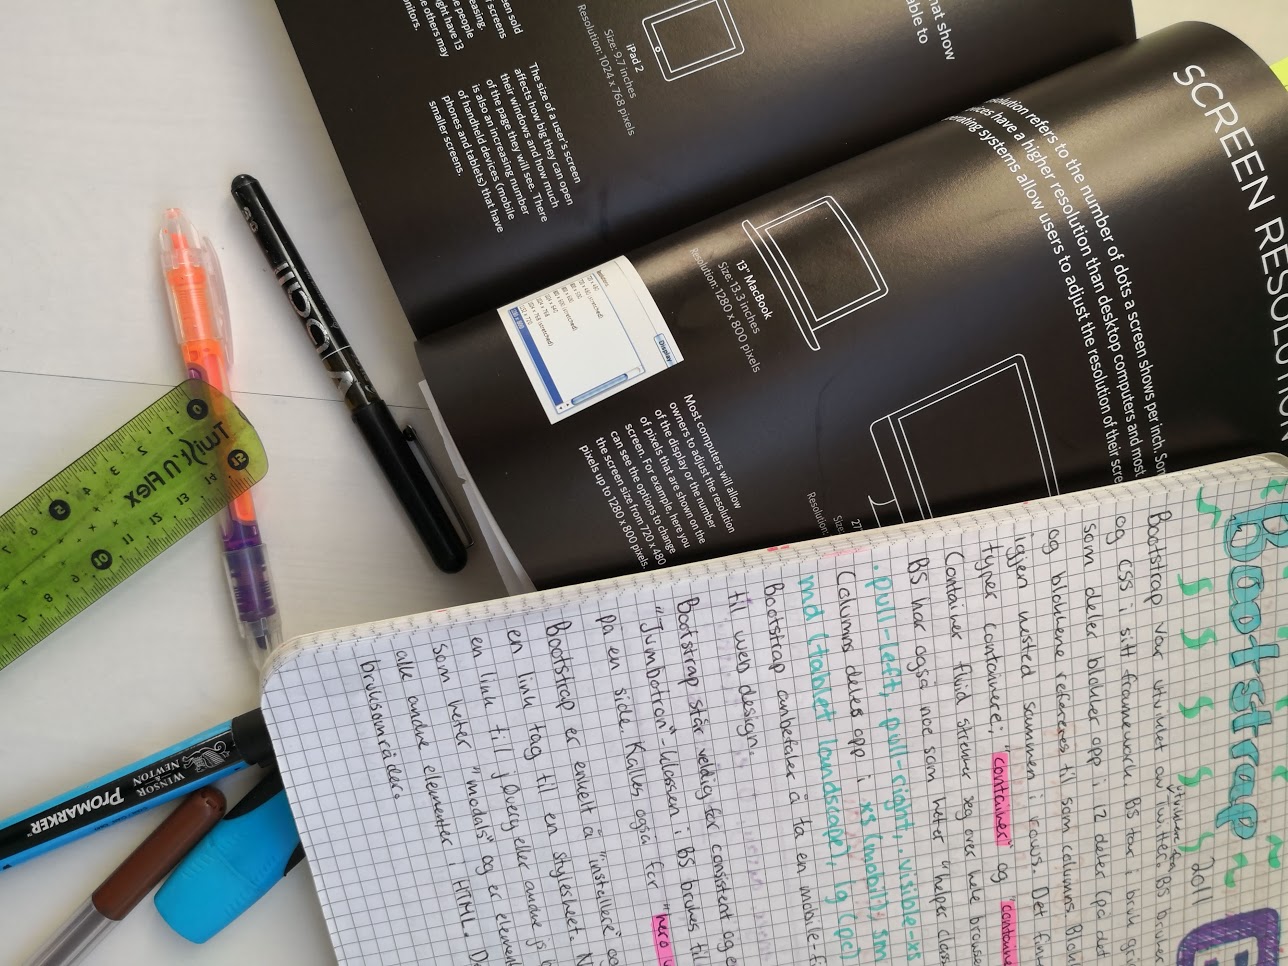 SCREEN RESOLUTION
refers to the number of dots a screen shows per inch. Som
have a higher resolution than desktop computers and most
operating systems allow users to adjust the resolution of their scre
en sold
screens
easing.
people
ght have 13
others may
nitors.
The size of a user's screen
affects how big they can open
their windows and how much
of the page they will see. There
is also an increasing number
of handheld devices (mobile
phones and tablets) that have
smaller screens.
hat show
able to
iPad 2
Size: 9.7 inches
Resolution: 1024 x 768 pixels
13" MacBook
Size: 13.3 inches
Resolution: 1280 x 800 pixels
27"
Size:
Resolution:
Display
Most computers will allow
owners to adjust the resolution
of the display or the number
of pixels that are shown on the
screen. For example, here you
can see the options to change
the screen size from 720 x 480
pixels up to 1280 x 800 pixels.
Bootstrap
Bootstrap var utviklet av Twitter i 2011
BS bruker
og CSS i sitt framework. BS tar i bruk gri
som deler blokker opp i 12 deler (på det
og blokkene referees til som columns. Blokk
igjen nøsted sammen i rows. Det finn
typer containere; "container" og "containe
Container fluid strever seg over hele browse
BS har også noe som heter "helper class
.pull-left, .pull-right, .visible-xs
Columns deles opp xs (mobil), sm
md (tablet landscape), lg (pc)
Bootstrap anbefaler å ta en mobile-fi
til web design.
Bootstrap står veldig for consistent og e
"Jumbotron"-klassen i BS brukes til
på en side. Kalles også for "hero u
Bootstrap er enkelt å "installere"
en link tag til en stylesheet.
en link til jQuery eller andre js
som heter "modals" og er element
alle andre elementer i HTML. D
bruksområder.
Twist n' Flex
0 1 2 3 4 5 6 7
15 14 13 12 11 10 9 8
WINSOR
& NEWTON
PROMARKER™